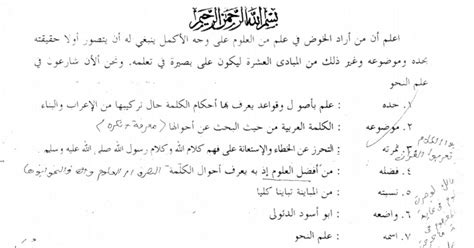 بسم الله الرحمن الرحيم
اعلم أن من أراد الخوض في علم من العلوم على وجه الأكمل ينبغي له أن يتصور أولا حقيقته
بحده وموضوعه وغير ذلك من المبادى العشرة ليكون على بصيرة في تعلمه. ونحن الآن شارعون في
علم النحو
١. حده : علم بأصول وقواعد يعرف بها أحكام الكلمة حال تركيبها من الإعراب والبناء
٢. موضوعه : الكلمة العربية من حيث البحث عن أحوالها
٣. ثمرته : التحرز عن الخطاء والإستعانة على فهم كلام الله وكلام رسول الله صلى الله عليه وسلم
٤. فضله : من أفضل العلوم إذ به يعرف أحوال الكلمة
٥. نسبته : من المباينة تباينا كليا
٦. واضعه : ابو أسود الدئولى
٧. اسمه : علم النحو